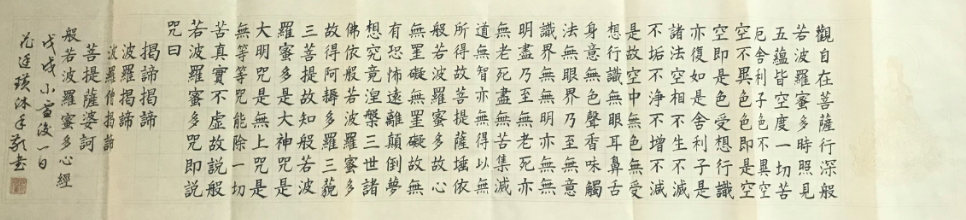 觀自在菩薩行深般
若波羅蜜多時照見
五蘊皆空度一切苦
厄舍利子色不異空
空不異色色即是空
空即是色受想行識
亦復如是舍利子是
諸法空相不生不滅
不垢不淨不增不減
是故空中無色無受
想行識無眼耳鼻舌
身意無色聲香味觸
法無眼界乃至無意
識界無無明亦無無
明盡乃至無老死亦
無老死盡無苦集滅
道無智亦無得以無
所得故菩提薩埵依
般若波羅蜜多故心
無罣礙無罣礙故無
有恐怖遠離顛倒夢
想究竟涅槃三世諸
佛依般若波羅蜜多
故得阿耨多羅三藐
三菩提故知般若波
羅蜜多是大神咒是
大明咒是無上咒是
無等等咒能除一切
苦真實不虛故說般
若波羅蜜多咒即說
咒曰
揭諦揭諦
波羅揭諦
波羅僧揭諦
菩提薩婆訶
般若波羅蜜多心經
戊戌小雪後一日
沐手敬書